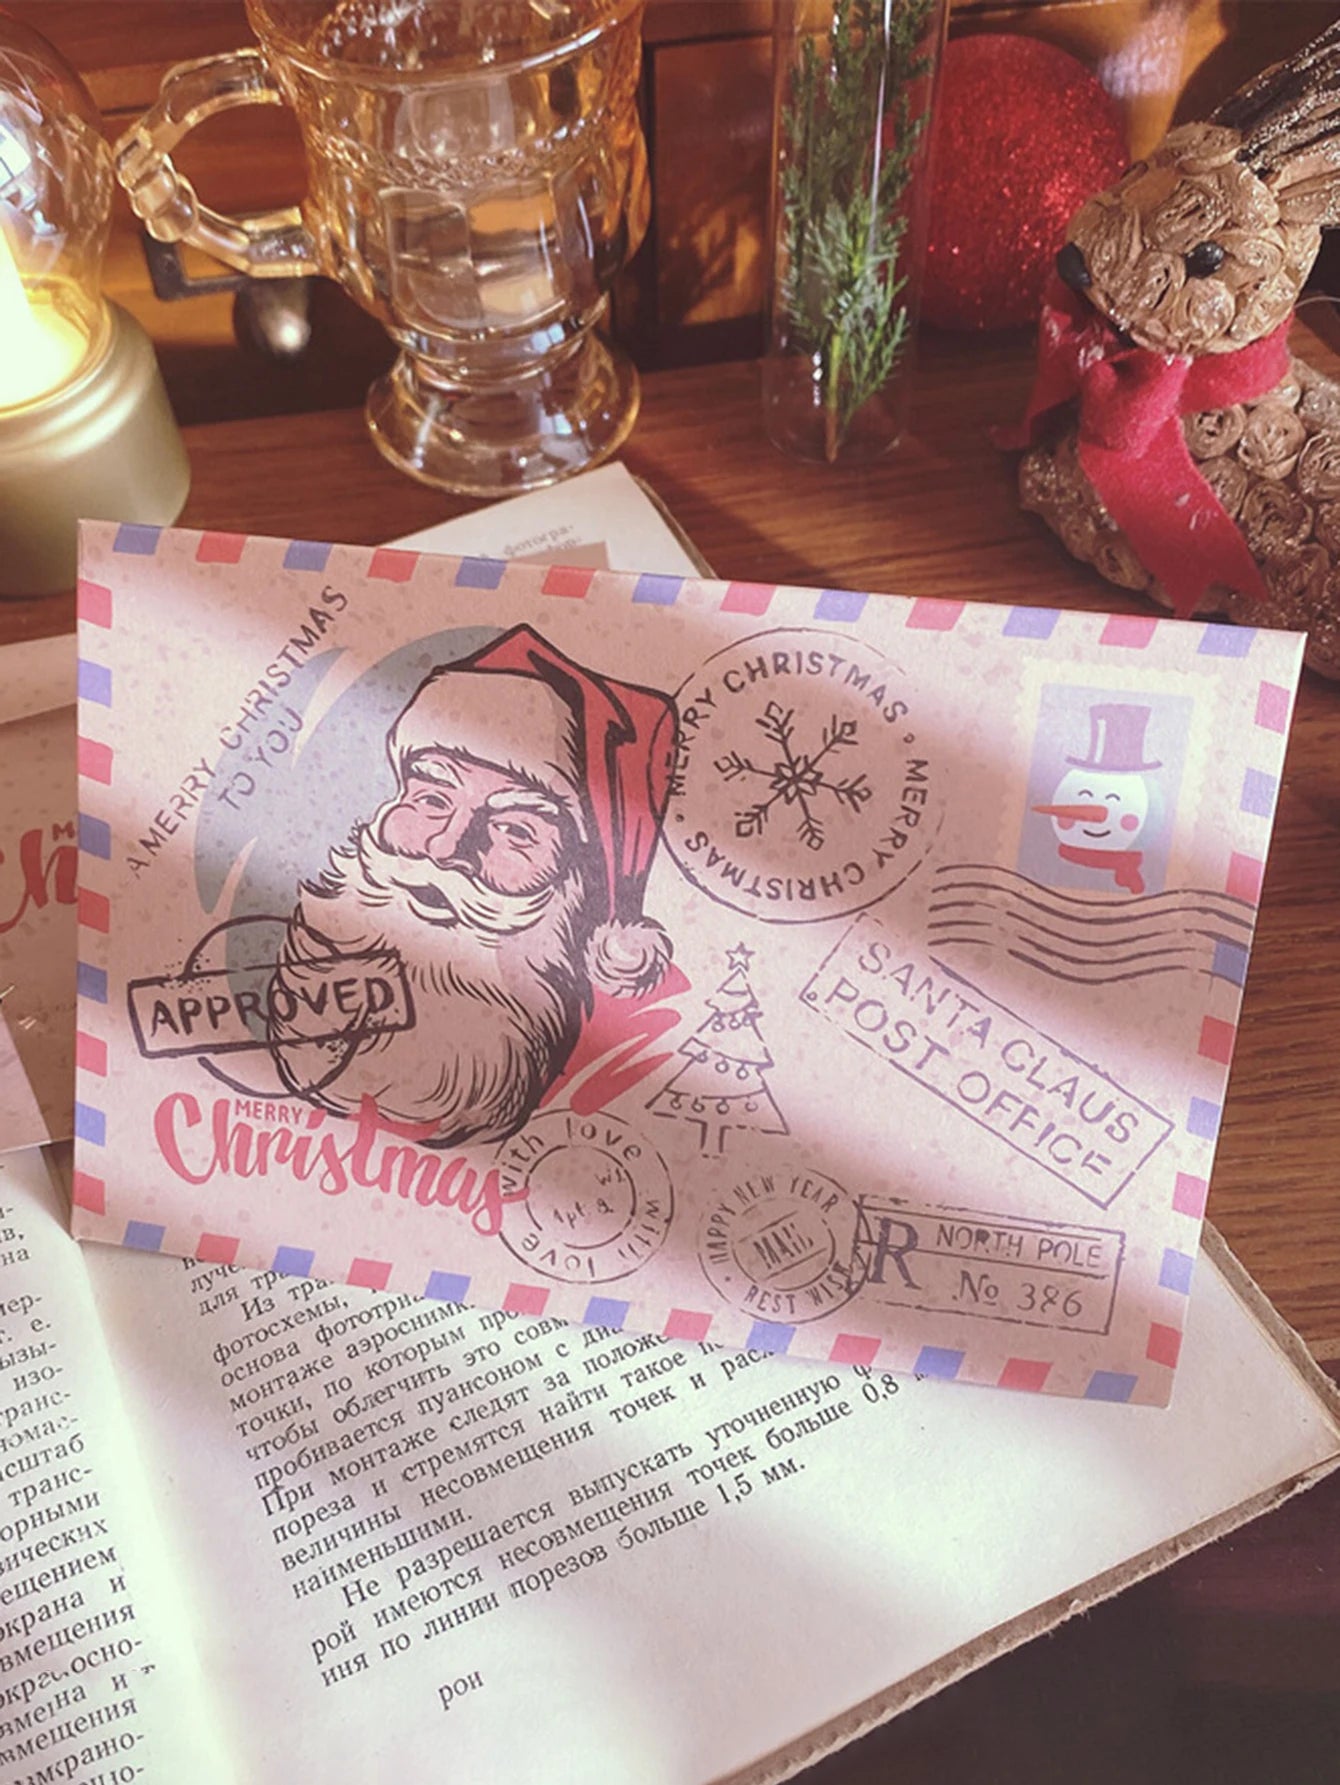 фотогра-
A MERRY CHRISTMAS
TO YOU
MERRY CHRISTMAS • MERRY CHRISTMAS •
SANTA CLAUS
POST OFFICE
APPROVED
MERRY
Christmas
with love with love
HAPPY NEW YEAR
MAIL
BEST WISH
R NORTH POLE
No 386
луче
для тра
Из тра
фотосхемы,
основа фототри
монтаже аэросним
точки, по которым про
чтобы облегчить это совм
пробивается пуансоном с диа
При монтаже следят за положе
пореза и стремятся найти такое п
величины несовмещения точек и рас
наименьшими.
Не разрешается выпускать уточненную ф
рой имеются несовмещения точек больше 0,8
ния по линии порезов больше 1,5 мм.
рои
на
мер-
т. е.
ызы-
изо-
транс-
сштаб
транс-
орными
ических
ещением
экрана и
вмещения
осно-
и
вмещения